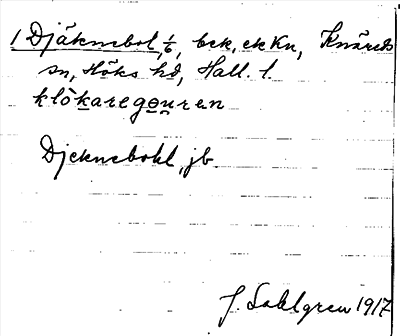 1 Djäknebol, 1/6, bek, ek Kn, Knäreds
sn, Höks hd, Hall. l.
klo̊karego̲u̲ren
Djeknebohl, jb.
J. Sahlgren 1917